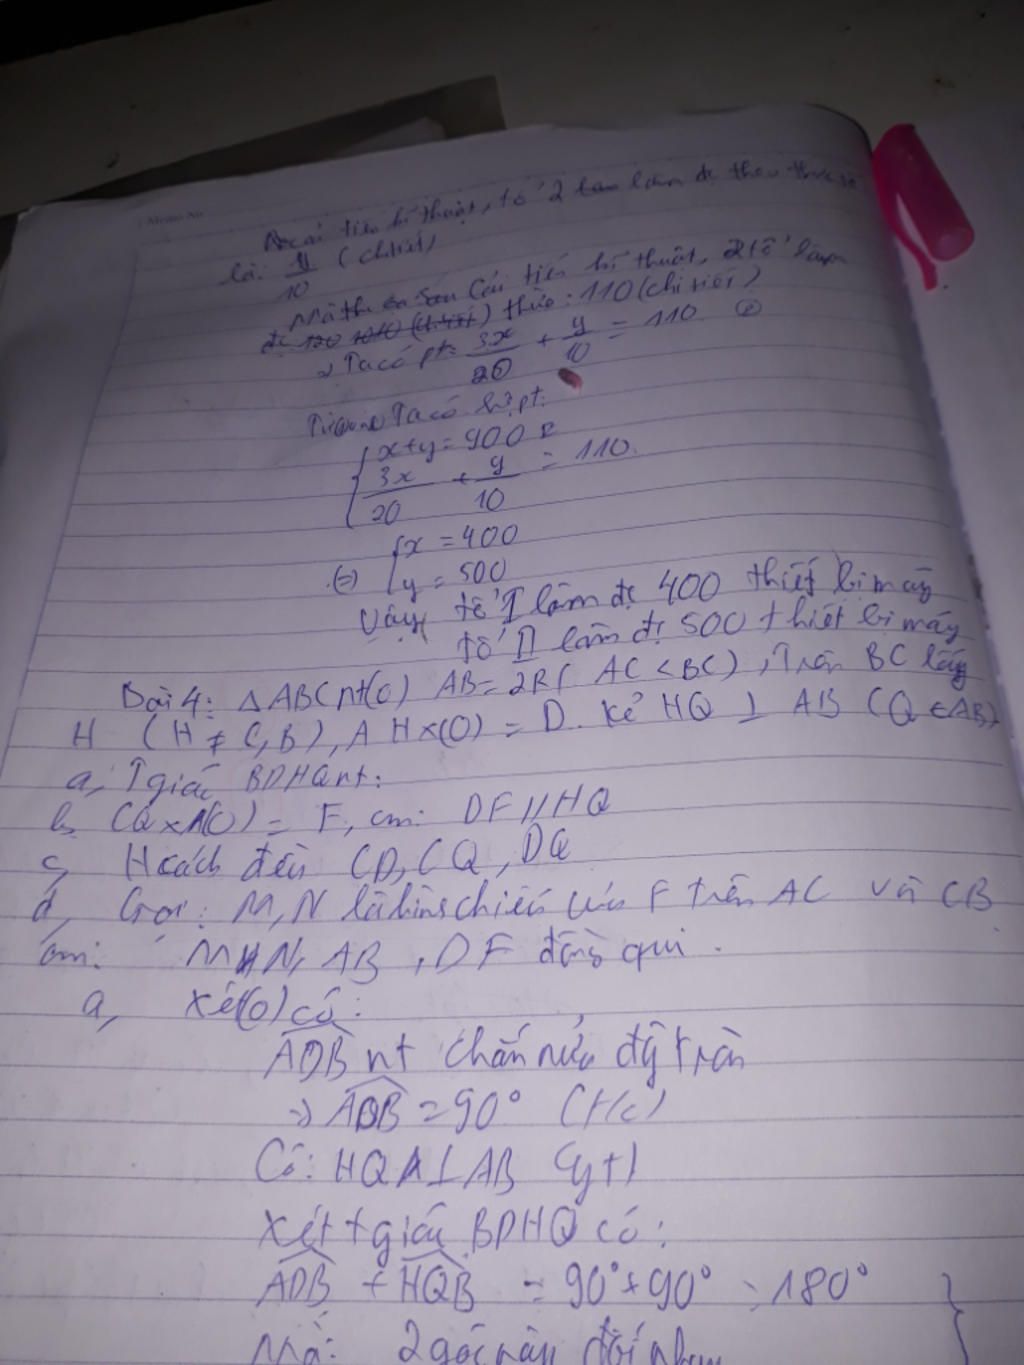 cải tiến kĩ thuật, tổ 2 làm đc theo thực tế
là: y/10 (chi tiết)
Mà th sau cải tiến kĩ thuật, 2 tổ làm
đc thêm: 110 (chi tiết)
=> Ta có pt: 3x/20 + y/10 = 110 ②
Ta có hệ pt:
{ x+y = 900
3x/20 + y/10 = 110.
(=) { x = 400
y = 500
Vậy tổ I làm đc 400 thiết bị máy
tổ II làm đc 500 thiết bị máy
Bài 4: △ABC nt(O) AB = 2R( AC < BC), Trên BC lấy
H (H ≠ C, B), AH x (O) = D. Kẻ HQ ⊥ AB (Q ∈ AB)
a, Tgiác BDHQ nt:
b, CQ x (O) = F, cm: DF // HQ
c, H cách đều CD, CQ, DQ
d, Gọi: M, N là hình chiếu của F trên AC và CB
cm: MN, AB, DF đồng qui.
a, Xét (O) có:
ADB nt chắn nửa đg tròn
=> ADB = 90° (t/c)
Có: HQ ⊥ AB (gt)
Xét tgiác BDHQ có:
ADB + HQB = 90° + 90° = 180°
Mà: 2 góc này đối nhau